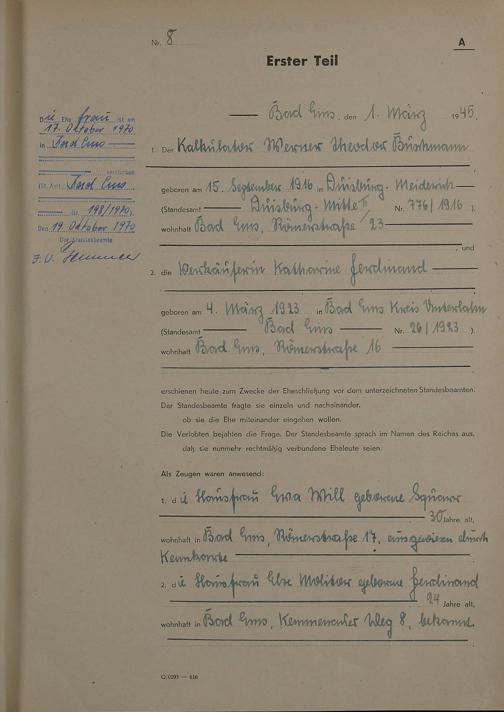 Nr. 8
A
Erster Teil
Bad Ems, den 1. März 1945.
1. Der Kalkulator Werner Theodor Buschmann
geboren am 15. September 1916 in Duisburg-Meiderich
(Standesamt Duisburg-Mitte II Nr. 776/1916 ).
wohnhaft Bad Ems, Römerstraße 23
und
2. die Verkäuferin Katharine Ferdinand
geboren am 4. März 1923 in Bad Ems Kreis Unterlahn
(Standesamt Bad Ems Nr. 26/1923 ).
wohnhaft Bad Ems, Römerstraße 16
erschienen heute zum Zwecke der Eheschließung vor dem unterzeichneten Standesbeamten.
Der Standesbeamte fragte sie einzeln und nacheinander,
ob sie die Ehe miteinander eingehen wollen.
Die Verlobten bejahten die Frage. Der Standesbeamte sprach im Namen des Reiches aus,
daß sie nunmehr rechtmäßig verbundene Eheleute seien.
Als Zeugen waren anwesend:
1. die Hausfrau Eva Will geborene
30 Jahre alt,
wohnhaft in Bad Ems, Römerstraße 17, ausgewiesen durch
Kennkarte
2. die Hausfrau Else Molitor geborene Ferdinand
24 Jahre alt,
wohnhaft in Bad Ems, Kemmenauer Weg 8, bekannt.
Q 0293 — 616
Die Ehefrau ist am
17. Oktober 1970
in Bad Ems
verstorben
(St. Amt Bad Ems
Nr. 198/1970)
Den 19. Oktober 1970
Der Standesbeamte